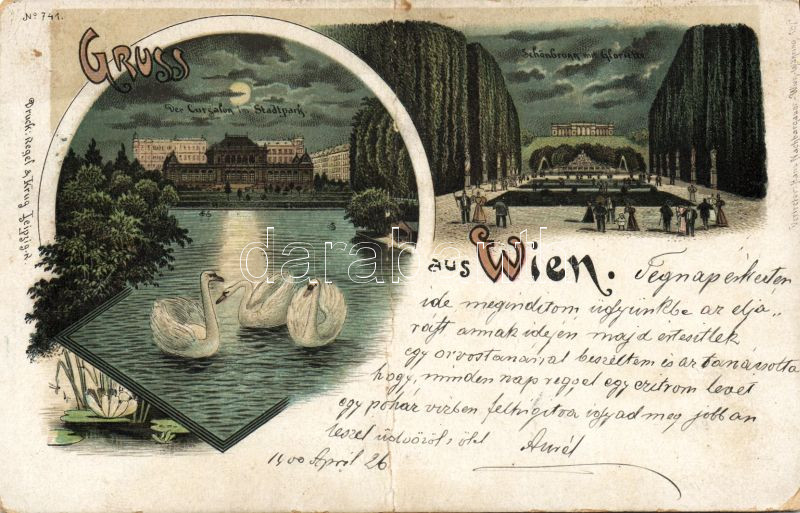 No 741.
GRUSS
Der Cursalon im Stadtpark
Schönbrunn mit Gloriette
Druck: Regel & Krug, Leipzig
darabanth
aus Wien.
Tegnap érkeztem
ide megindítom ügyünkbe az eljá„
rást annak idején majd értesítlek
egy orvostanárral beszéltem és az tanácsolta
hogy, minden nap reggel egy czitrom levét
egy pohár vizben felhigitva igyad meg jobban
leszel üdvözöl s ölel Aurél
1900 April 26